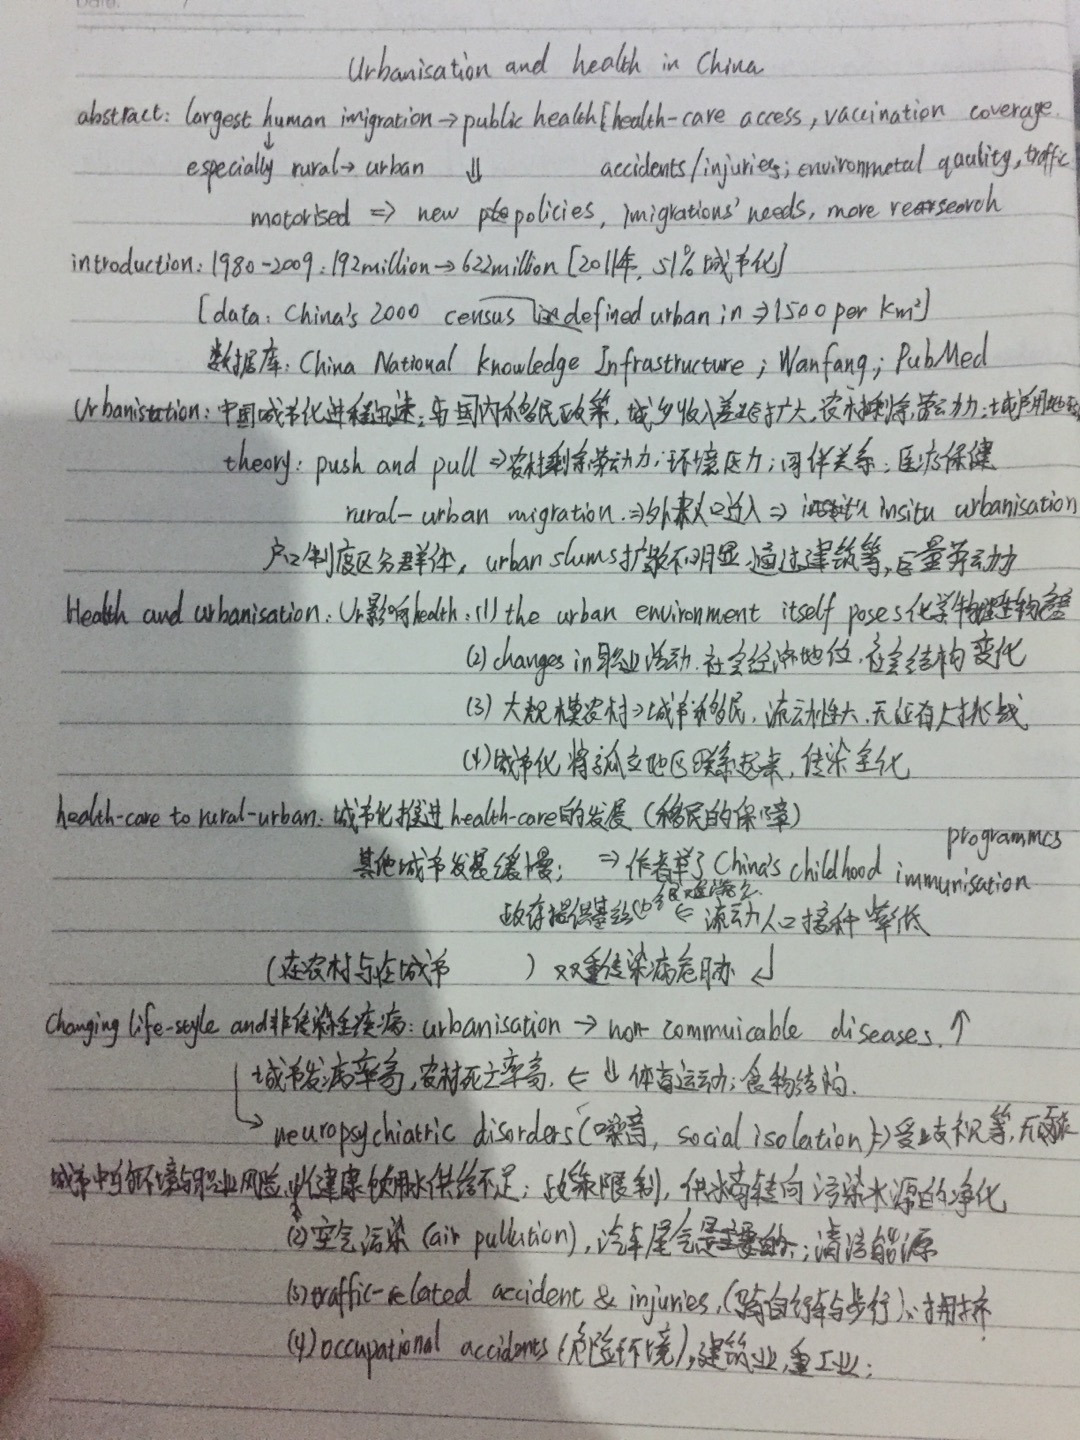 Urbanisation and health in China
abstract: largest human imigration → public health [health-care access, vaccination coverage.
especially rural → urban ⇓ accidents/injuries; environmetal quality, traffic
motorised ⇒ new policies, imigrations' needs, more research
introduction: 1980-2009: 192million → 622million [2011年, 51%城市化]
[data: China's 2000 census defined urban in ⇒ 1500 per km²]
数据库: China National Knowledge Infrastructure; Wanfang; PubMed
Urbanisation: 中国城市化进程迅速: 与国内移民政策, 城乡收入差距扩大, 农村剩余劳动力;
theory: push and pull ⇒ 农村剩余劳动力; 环境压力; 同伴关系; 医疗保健
rural-urban migration. ⇒ 外来人口迁入 ⇒ insitu urbanisation
户口制度区分群体, urban slums扩散不明显. 通过建筑等, 巨量劳动力
Health and urbanisation: Ur影响health: (1) the urban environment itself poses 化学物理生物危害
(2) changes in 职业活动. 社会经济地位, 社会结构变化
(3) 大规模农村→城市移民, 流动性大, 无证有人挑战
(4) 城市化将孤立地区联系起来, 传染全化
health-care to rural-urban: 城市化推进health-care的发展 (移民的保障)
其他城市发展缓慢; ⇒ 作者举了China's childhood immunisation programmes
政府提供基础 ⇐ 流动人口接种率低
(在农村与在城市 ) 双重传染病危胁 ↲
Changing life-style and 非传染性疾病: urbanisation → non-commuicable diseases. ↑
城市发病率高, 农村死亡率高. ⇐ ⇓ 体育运动; 食物结构.
↳ neuropsychiatric disorders (噪音, social isolation) ⇒ 受歧视等,
城市中的环境与职业风险: (1) 健康饮用水供给不足; 政策限制, 供水商转向污染水源的净化
(2) 空气污染 (air pullution), 汽车尾气是主要的; 清洁能源
(3) traffic-related accident & injuries, (骑自行车与步行), 拥挤
(4) occupational accidents (危险环境), 建筑业, 重工业;